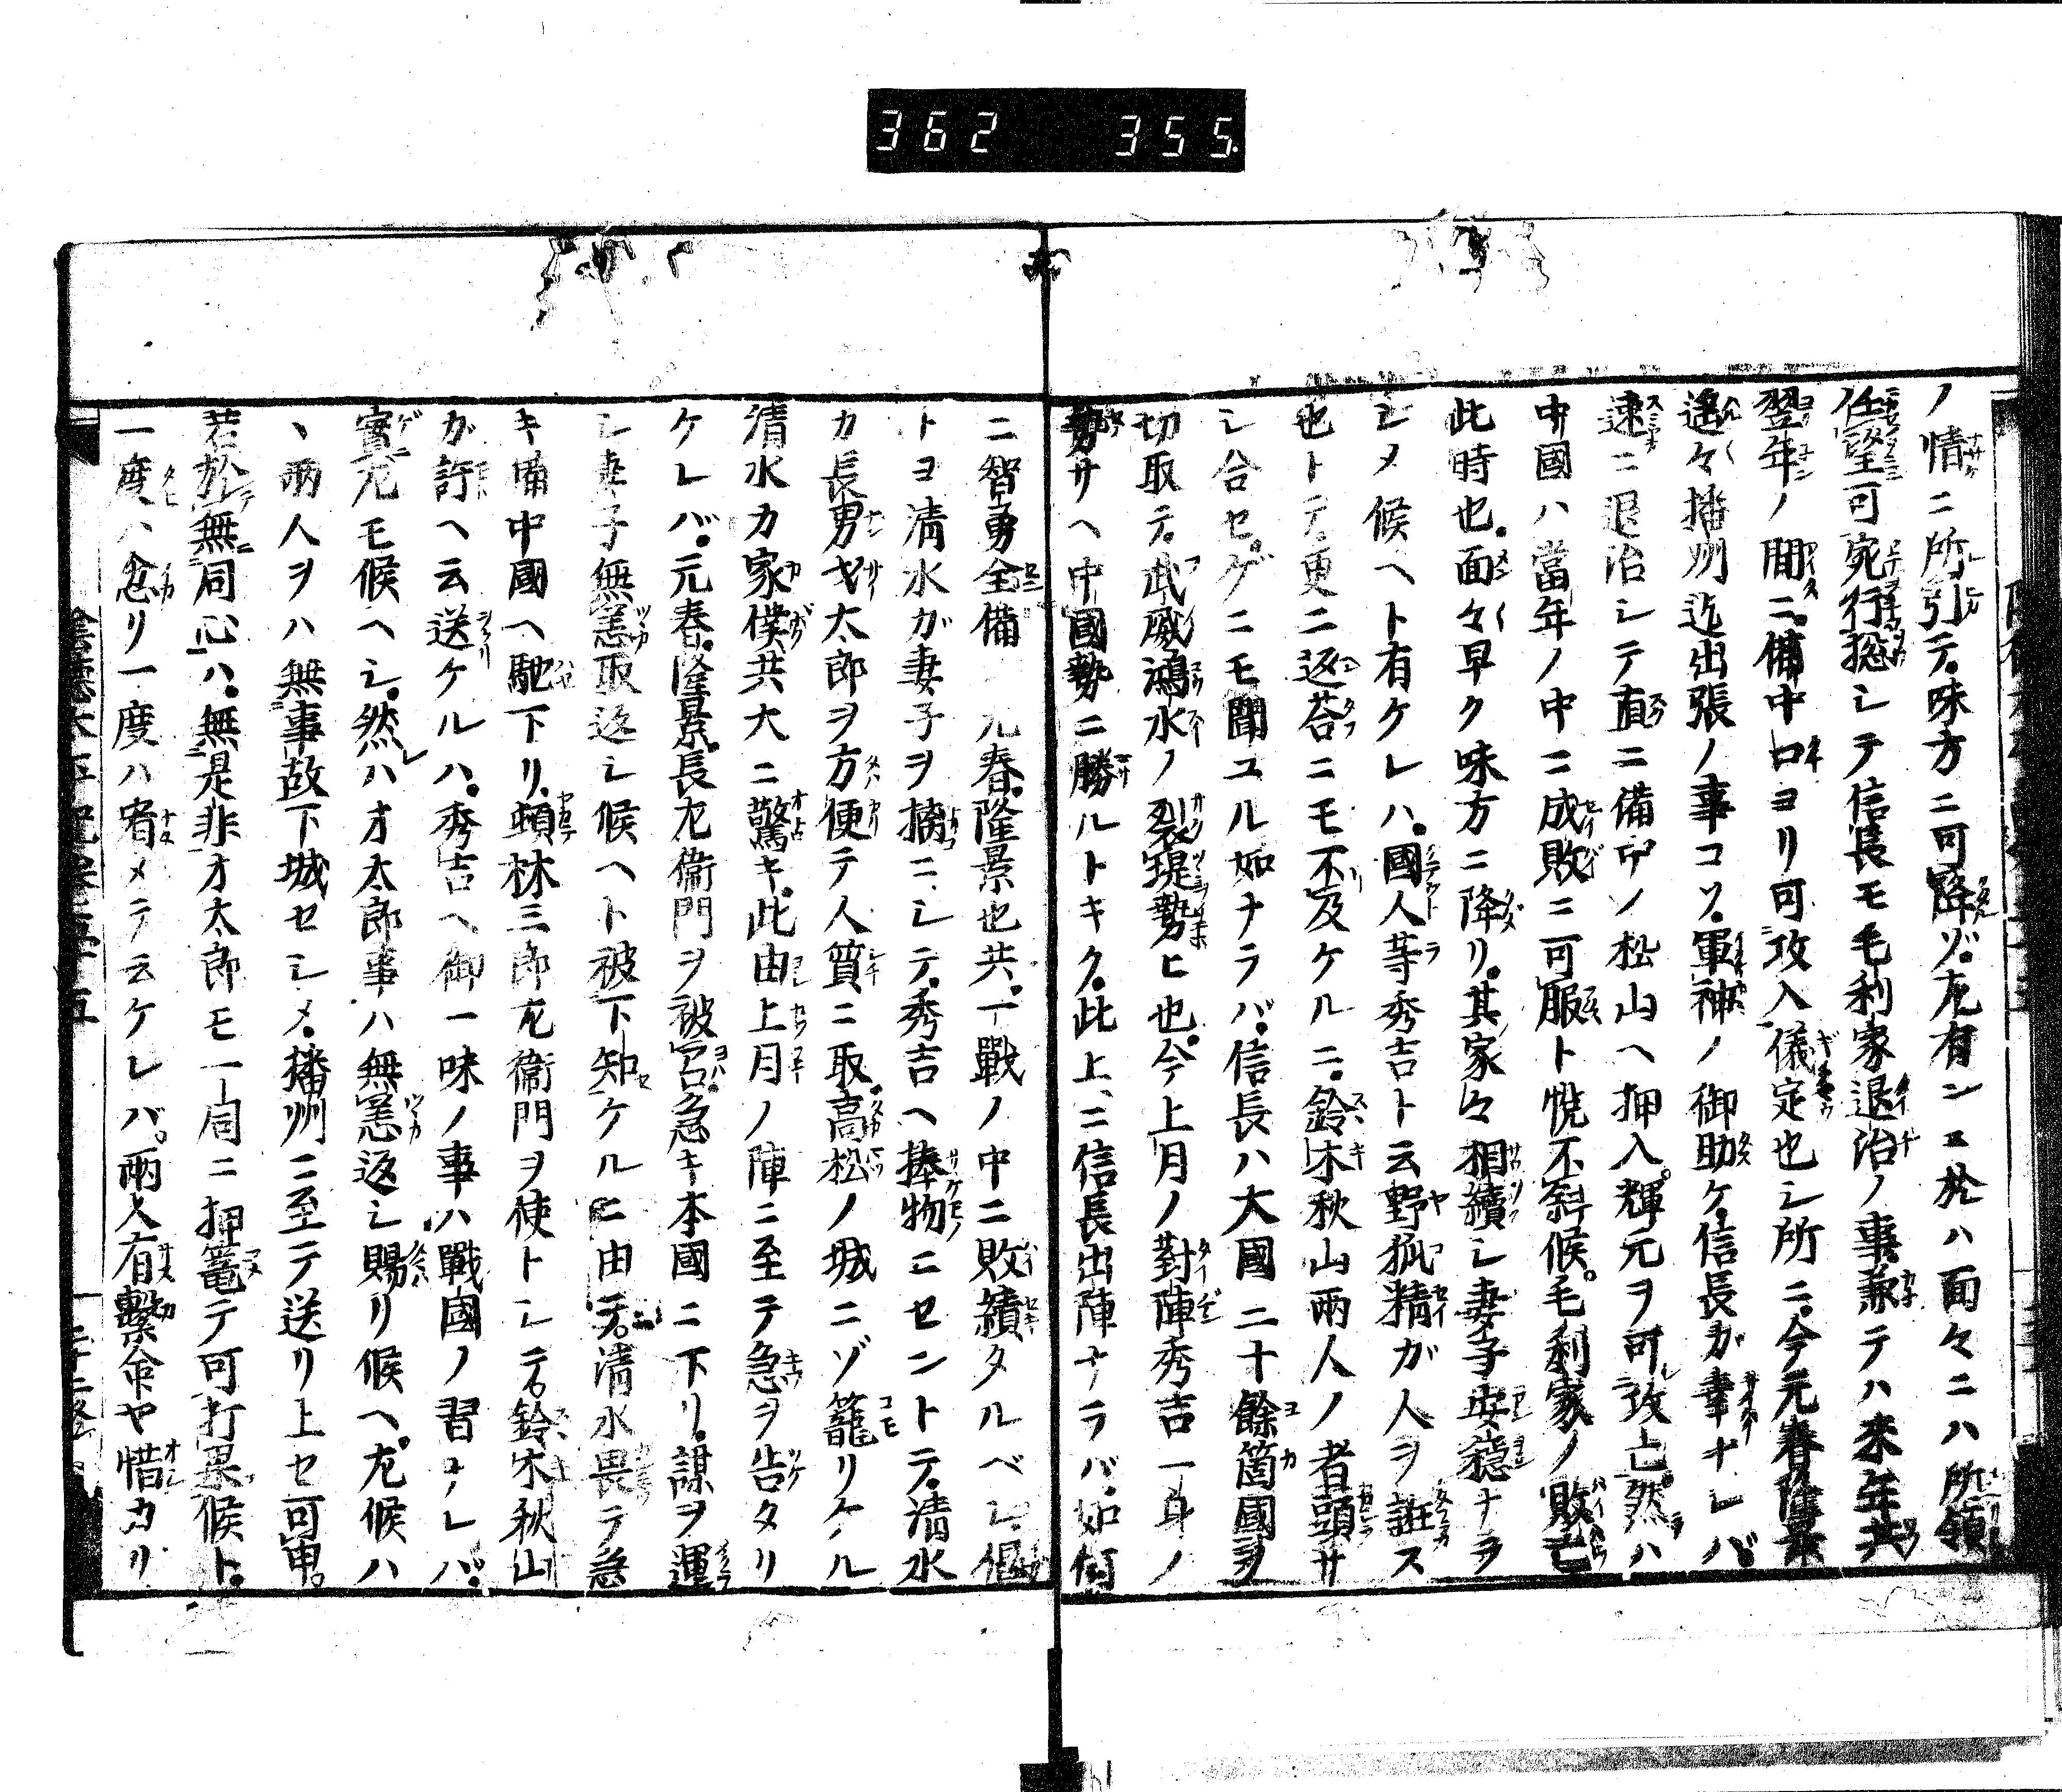 362 355
ノ情ニ所引テ味方ニ可降ゾ尤有ンニ於ハ面々ニハ所領
任望可宛行惣シテ信長モ毛利家退治ノ事兼テハ来年共
翌年ノ間ニ備中口ヨリ可攻入儀定也シ所ニ今元春隆景
遙々播州迄出張ノ事コソ軍神ノ御助ケ信長ガ幸ナレバ
速ニ退治シテ直ニ備中ノ松山ヘ押入輝元ヲ可攻亡然ハ
中國ハ當年ノ中ニ成敗ニ可服ト悦不斜候毛利家ノ敗亡
此時也面々早ク味方ニ降リ其家々相續シ妻子安穏ナラ
シメ候ヘト有ケレハ國人等秀吉ト云野狐精ガ人ヲ誑ス
也トテ更ニ返荅ニモ不及ケルニ鈴木秋山兩人ノ者頭サ
シ合セゲニモ聞ユル如ナラバ信長ハ大國二十餘箇國ヲ
切取テ武威鴻水ノ裂堤勢ヒ也今上月ノ對陣秀吉一身ノ
勢サヘ中國勢ニ勝ルトキク此上ニ信長出陣ナラバ如何
ニ智勇全備 元春隆景也共一戰ノ中ニ敗績タルベシ
トヨ清水ガ妻子ヲ擒ニシテ秀吉ヘ捧物ニセントテ清水
カ長男才太郎ヲ方便テ人質ニ取高松ノ城ニゾ籠リケル
清水カ家僕共大ニ驚キ此由上月ノ陣ニ至テ急ヲ告タリ
ケレバ元春隆景長左衞門ヲ被宮急キ本國ニ下リ謀ヲ運
シ妻子無恙取返シ候ヘト被下知ケルニ由テ清水畏テ急
キ備中國ヘ馳下リ頓林三郎左衞門ヲ使トシテ鈴木秋山
ガ許ヘ云送ケルハ秀吉ヘ御一味ノ事ハ戰國ノ習ナレバ
實尤モ候ヘシ然ハ才太郎事ハ無恙返シ賜リ候ヘ左候ハ
丶兩人ヲハ無事故下城セシメ播州ニ至テ送リ上セ可申
若於無同心ハ無是非才太郎モ一同ニ押篭テ可打果候ト
一度ハ怒リ一度ハ宥メテ云ケレバ兩人有繫命ヤ惜カリ